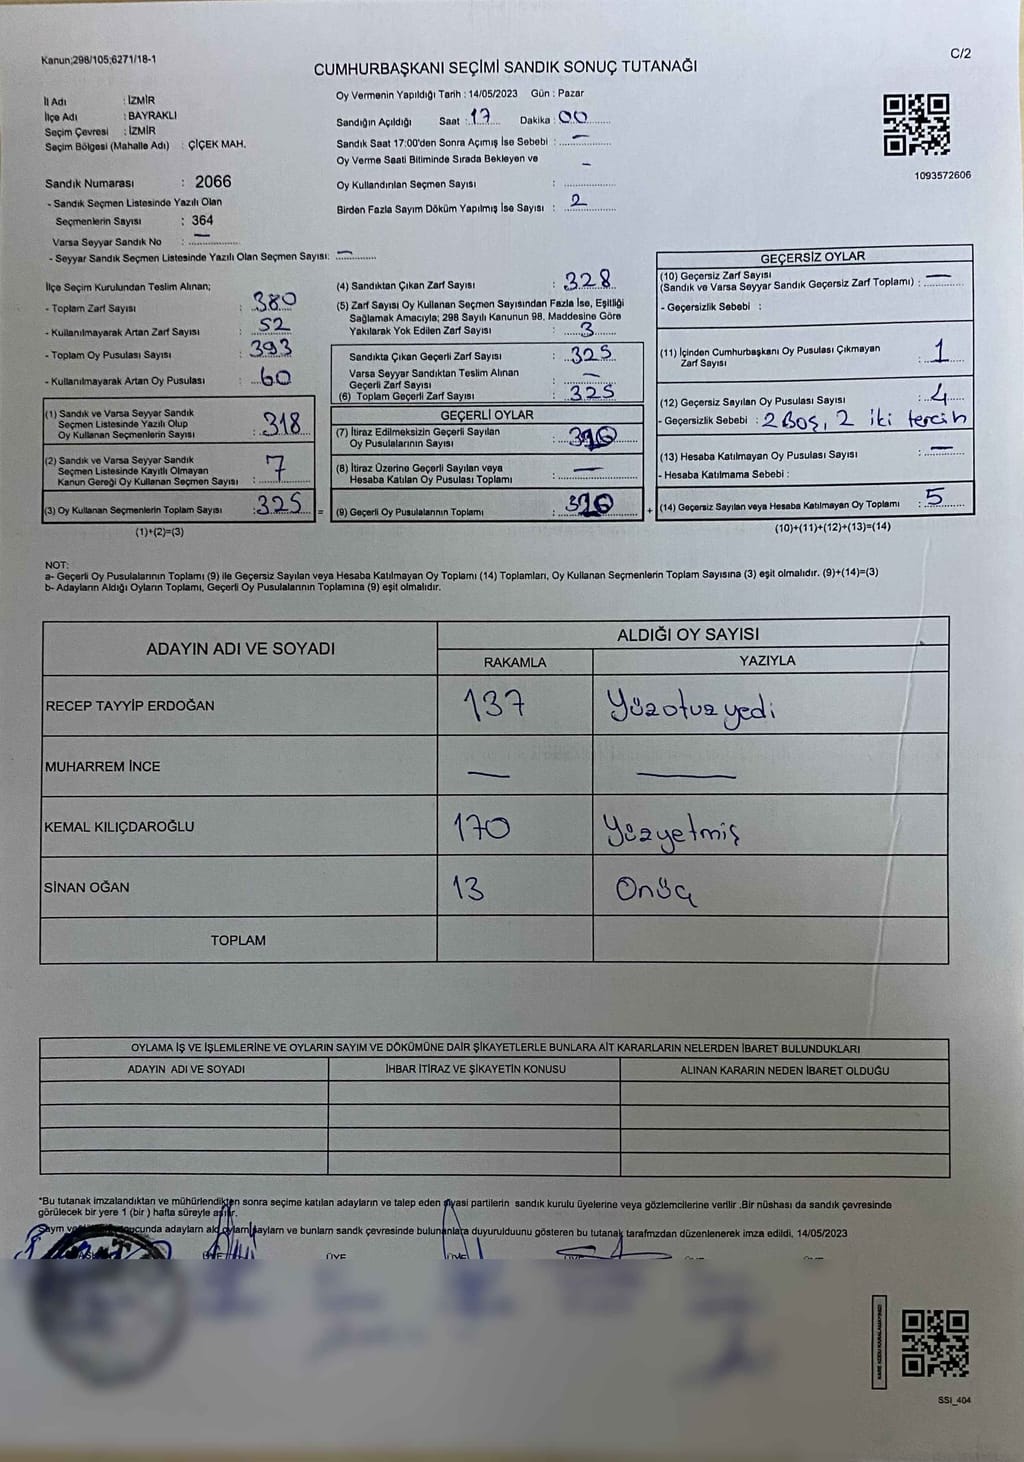 Kanun;298/105;6271/18-1
C/2
CUMHURBAŞKANI SEÇİMİ SANDIK SONUÇ TUTANAĞI
İl Adı : İZMİR
İlçe Adı : BAYRAKLI
Seçim Çevresi : İZMİR
Seçim Bölgesi (Mahalle Adı) : ÇİÇEK MAH.
Sandık Numarası : 2066
- Sandık Seçmen Listesinde Yazılı Olan
Seçmenlerin Sayısı : 364
Varsa Seyyar Sandık No : —
- Seyyar Sandık Seçmen Listesinde Yazılı Olan Seçmen Sayısı: —
Oy Vermenin Yapıldığı Tarih : 14/05/2023 Gün : Pazar
Sandığın Açıldığı Saat : 17 Dakika : 00
Sandık Saat 17:00'den Sonra Açımış İse Sebebi : —
Oy Verme Saati Bitiminde Sırada Bekleyen ve —
Oy Kullandırılan Seçmen Sayısı :
Birden Fazla Sayım Döküm Yapılmış İse Sayısı : 2
1093572606
İlçe Seçim Kurulundan Teslim Alınan;
- Toplam Zarf Sayısı : 380
- Kullanılmayarak Artan Zarf Sayısı : 52
- Toplam Oy Pusulası Sayısı : 393
- Kullanılmayarak Artan Oy Pusulası : 60
(1) Sandık ve Varsa Seyyar Sandık
Seçmen Listesinde Yazılı Olup
Oy Kullanan Seçmenlerin Sayısı : 318
(2) Sandık ve Varsa Seyyar Sandık
Seçmen Listesinde Kayıtlı Olmayan
Kanun Gereği Oy Kullanan Seçmen Sayısı : 7
(3) Oy Kullanan Seçmenlerin Toplam Sayısı : 325
(1)+(2)=(3)
(4) Sandıktan Çıkan Zarf Sayısı : 328
(5) Zarf Sayısı Oy Kullanan Seçmen Sayısından Fazla İse, Eşitliği
Sağlamak Amacıyla; 298 Sayılı Kanunun 98. Maddesine Göre
Yakılarak Yok Edilen Zarf Sayısı : 3
Sandıkta Çıkan Geçerli Zarf Sayısı : 325
Varsa Seyyar Sandıktan Teslim Alınan
Geçerli Zarf Sayısı : —
(6) Toplam Geçerli Zarf Sayısı : 325
GEÇERLİ OYLAR
(7) İtiraz Edilmeksizin Geçerli Sayılan
Oy Pusulalarının Sayısı :
(8) İtiraz Üzerine Geçerli Sayılan veya
Hesaba Katılan Oy Pusulası Toplamı : —
= (9) Geçerli Oy Pusulalarının Toplamı :
GEÇERSİZ OYLAR
(10) Geçersiz Zarf Sayısı
(Sandık ve Varsa Seyyar Sandık Geçersiz Zarf Toplamı) : —
- Geçersizlik Sebebi :
(11) İçinden Cumhurbaşkanı Oy Pusulası Çıkmayan
Zarf Sayısı : 1
(12) Geçersiz Sayılan Oy Pusulası Sayısı : 4
- Geçersizlik Sebebi : 2 Boş, 2 iki tercih
(13) Hesaba Katılmayan Oy Pusulası Sayısı : —
- Hesaba Katılmama Sebebi :
+ (14) Geçersiz Sayılan veya Hesaba Katılmayan Oy Toplamı : 5
(10)+(11)+(12)+(13)=(14)
NOT:
a- Geçerli Oy Pusulalarının Toplamı (9) ile Geçersiz Sayılan veya Hesaba Katılmayan Oy Toplamı (14) Toplamları, Oy Kullanan Seçmenlerin Toplam Sayısına (3) eşit olmalıdır. (9)+(14)=(3)
b- Adayların Aldığı Oyların Toplamı, Geçerli Oy Pusulalarının Toplamına (9) eşit olmalıdır.
ADAYIN ADI VE SOYADI
ALDIĞI OY SAYISI
RAKAMLA YAZIYLA
RECEP TAYYİP ERDOĞAN 137 Yüzotuz yedi
MUHARREM İNCE — —
KEMAL KILIÇDAROĞLU 170 Yüzyetmiş
SİNAN OĞAN 13 Onüç
TOPLAM
OYLAMA İŞ VE İŞLEMLERİNE VE OYLARIN SAYIM VE DÖKÜMÜNE DAİR ŞİKAYETLERLE BUNLARA AİT KARARLARIN NELERDEN İBARET BULUNDUKLARI
ADAYIN ADI VE SOYADI İHBAR İTİRAZ VE ŞİKAYETİN KONUSU ALINAN KARARIN NEDEN İBARET OLDUĞU
*Bu tutanak imzalandıktan ve mühürlendikten sonra seçime katılan adayların ve talep eden siyasi partilerin sandık kurulu üyelerine veya gözlemcilerine verilir .Bir nüshası da sandık çevresinde
görülecek bir yere 1 (bir ) hafta süreyle asılır.
Sayım ve sonucunda adayların ald oyların bunlarn sandk çevresinde bulunanlara duyurulduunu gösteren bu tutanak tarafmzdan düzenlenerek imza edildi, 14/05/2023
ÜYE ÜYE
KARE KODU KARALAMAYINIZ!
SSI_404